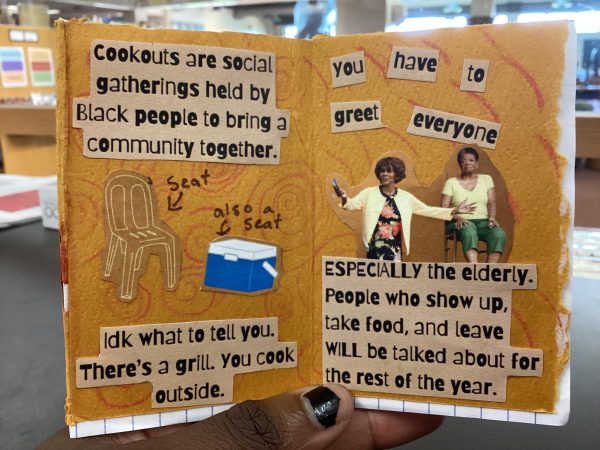 Cookouts are social
gatherings held by
Black people to bring a
community together.
Seat
also a
seat
Idk what to tell you.
There's a grill. You cook
outside.
you have to
greet everyone
ESPECIALLY the elderly.
People who show up,
take food, and leave
WILL be talked about for
the rest of the year.